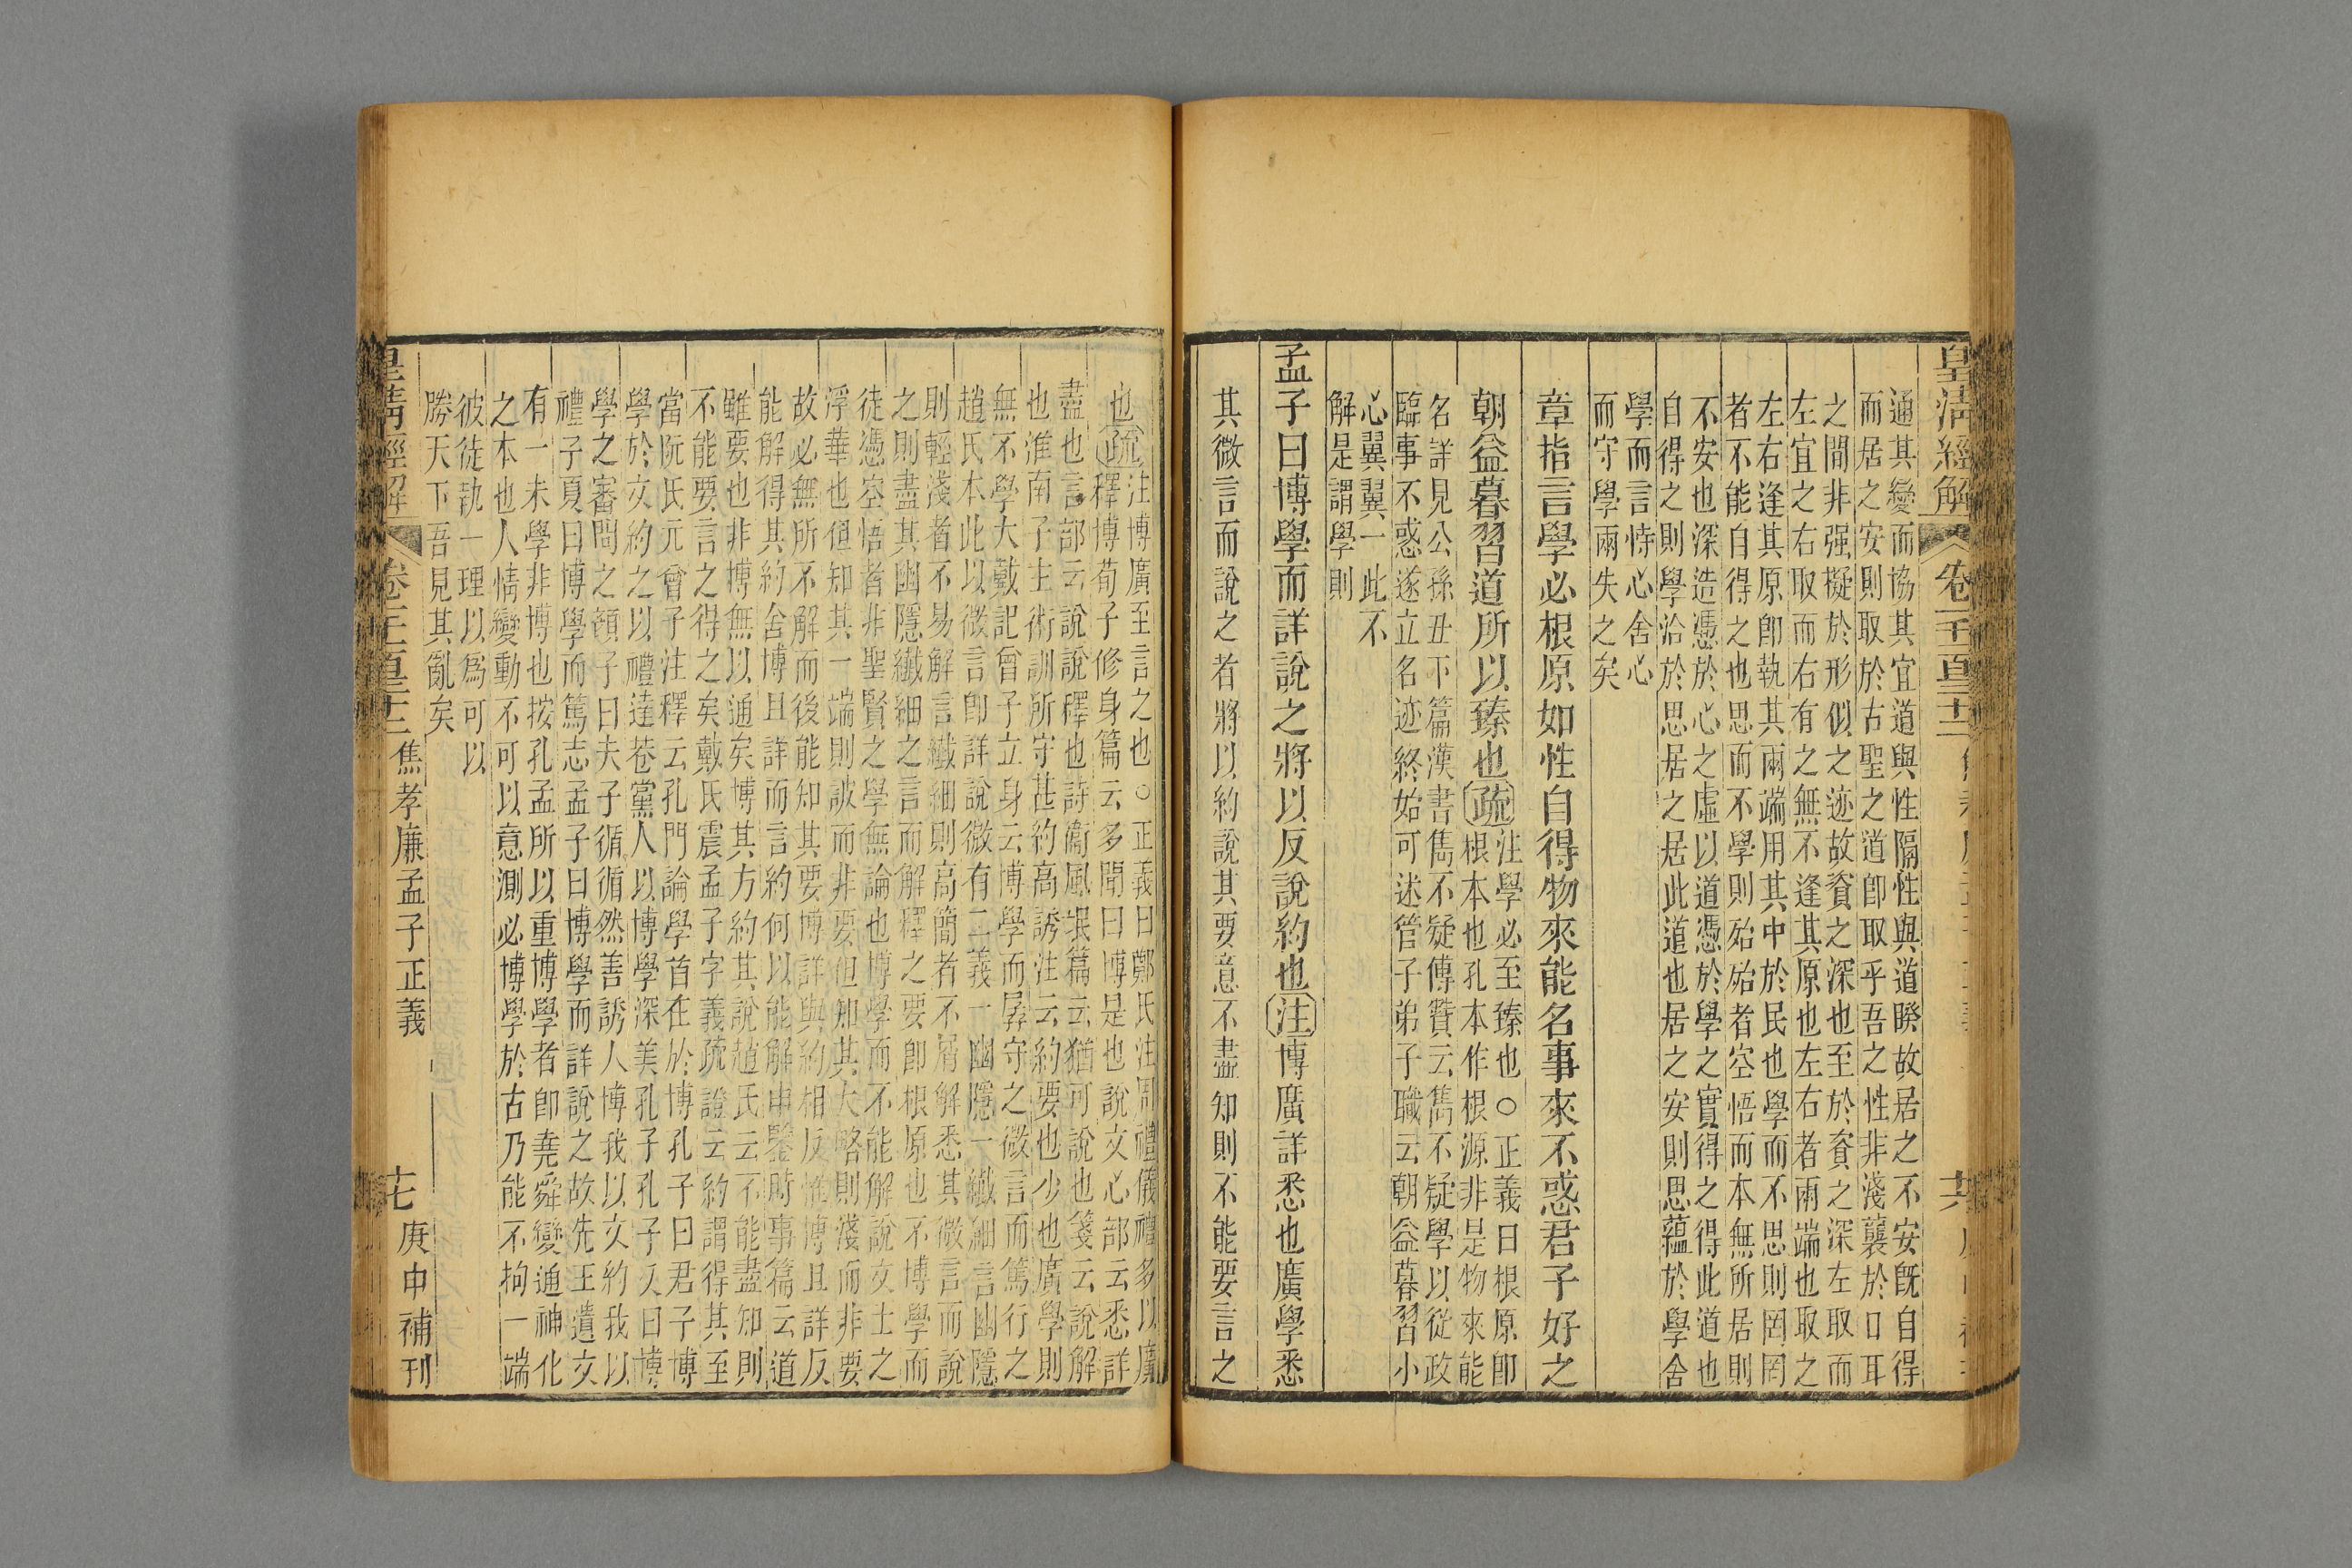 皇清經解
卷一千一百三十三
六
通其變而協其宜道與性隔性與道暌故居之不安旣自得
而居之安則取於古聖之道卽取乎吾之性非淺襲於口耳
之間非强擬於形似之迹故資之深也至於資之深左取而
左宜之右取而右有之無不逢其原也左右者兩端也取之
左右逢其原卽執其兩端用其中於民也學而不思則罔罔
者不能自得之也思而不學則殆殆者空悟而本無所居則
不安也深造憑於心之虛以道憑於學之實得之得此道也
自得之則學洽於思居之居此道也居之安則思蘊於學舍
學而言恃心舍心
而守學兩失之矣
章指言學必根原如性自得物來能名事來不惑君子好之
朝益暮習道所以臻也疏
注學必至臻也○正義曰根原卽
根本也孔本作根源非是物來能
名詳見公孫丑下篇漢書雋不疑傳贊云雋不疑學以從政
臨事不惑遂立名迹終始可述管子弟子職云朝益暮習小
心翼翼一此不
解是謂學則
孟子曰博學而詳說之將以反說約也注博廣詳悉也廣學悉
其微言而說之者將以約說其要意不盡知則不能要言之
也疏
注博廣至言之也○正義曰鄭氏注周禮儀禮多以廣
釋博荀子修身篇云多聞曰博是也說文心部云悉詳
盡也言部云說說釋也詩衞風氓篇云猶可說也箋云說解
也淮南子主術訓所守甚約高誘注云約要也少也廣學則
無不學大戴記曾子立身云博學而孱守之微言而篤行之
趙氏本此以微言卽詳說微有二義一幽隱一纖細言幽隱
則輕淺者不易解言纖細則高簡者不屑解悉其微言而說
之則盡其幽隱纖細之言而解釋之要卽根原也不博學而
徒憑空悟者非聖賢之學無論也博學而不能解說文士之
浮華也但知其一端則詖而非要但知其大略則淺而非要
故必無所不解而後能知其要博詳與約相反惟博且詳反
能解得其約舍博且詳而言約何以能解申鑒時事篇云道
雖要也非博無以通矣博其方約其說趙氏云不能盡知則
不能要言之得之矣戴氏震孟子字義疏證云約謂得其至
當阮氏元曾子注釋云孔門論學首在於博孔子曰君子博
學於文約之以禮達巷黨人以博學深美孔子孔子又曰博
學之審問之顏子曰夫子循循然善誘人博我以文約我以
禮子夏曰博學而篤志孟子曰博學而詳說之故先王遺文
有一未學非博也按孔孟所以重博學者卽堯舜變通神化
之本也人情變動不可以意測必博學於古乃能不拘一端
彼徒執一理以爲可以
勝天下吾見其亂矣
皇清經解
卷一千一百三十三
焦孝廉孟子正義
七
庚申補刊